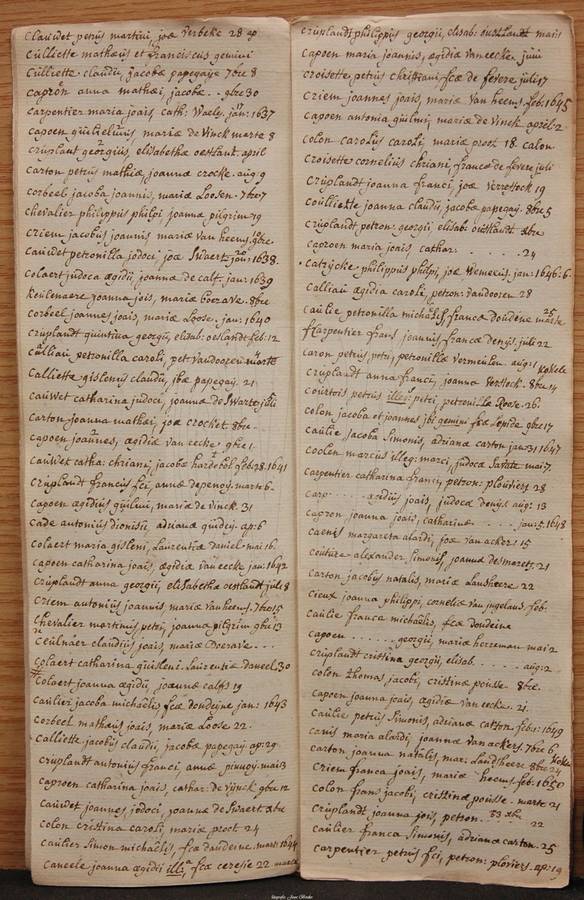 Clauwet petrus martini, joæ verbeke 28 ap
Culliette mathæus et franciscus gemini
Culliette claudii, jacobæ papegaije 7bre 8
capron anna mathæi, jacobæ . . 9bre 30
carpentier maria joais, cath: Waels, jan: 1637
capoen guilielmus, mariæ de Vinck 8
cruplant georgius, elisabethæ oestlant. april
carton petrus mathæi, joannæ crocke. aug 9
corbeel jacoba joannis, mariæ Loosen. 7bre 7
chevalier philippus philpi joannæ pilgrim 19
criem jacobus joannis mariæ van heems 9bre
cauwet petronilla jodoci, joæ Swaert, jan: 1638.
colaert judoca ægidii, joannæ de calf. jan: 1639
Keulenaere joanna jois, mariæ 8bre
corbeel joannes joais, mariæ Loose. jan: 1640
cruplandt quintina georgii, elisab: oeslandt feb: 12
culliau petronilla caroli, pet vandooren
Calliette gislenus claudii, jbæ papegaij. 21
cauwet catharina judoci, joannæ de Swarte
carton joanna mathæi, joæ crocket 8bre
capoen joannes, ægidiæ van eecke 9bre 1
cauwet catha: chriani, jacobæ feb: 28. 1641
cruplandt franciscus fci, annæ depenoij. marte 6
capoen ægidius guilmi, mariæ de vinck. 31
cade antonius dionisii, adrianæ quideij. ap: 6
colaert maria gisleni, Laurentiæ daniel. mai 16
capoen catharina joais, ægidiæ van eecke jan: 1642
cruplandt anna georgii, elisabethæ oestlandt 8
criem antonius joannis, mariæ vanheems. 7bre 15
chevalier martinus petri, joannæ pilgrim 9bre 13
ceulnaer claudius joais, mariæ
colaert catharina guisleni. Laurentiæ daneel. 30
colaert joanna ægidii, joannæ calfs 19
caulier jacoba michaelis fcæ doudeijne jan: 1643
corbeel mathæus joais, mariæ Loose 22.
calliette jacobus claudii, jacobæ papegaij ap: 29
cruplandt antonius franci, annæ pinnoij. mai 13
caproen catharina joais, cathar: de vijnck 9bre 12
cauwet joannes jodoci, joannæ de Swaert xbre
colon cristina caroli, mariæ proot 24
caulier Simon michaelis, fcæ daudenne. mart: 1644
caneele joanna ægidii illa, fcæ ceresie 22
cruplandt philippus georgii, elisab: oustlandt mais
capoen maria joannis, ægidiæ van eecke junii
croisette petrus christiani, fcæ de fevere juli 17
criem joannes joais, mariæ van heems feb: 1645
capoen antonia guilmi, mariæ de Vinck april: 2
colon carolus caroli, mariæ proot 18 colon.
croisette cornelius chriani, francæ de fevere juli
cruplandt joanna franci, joæ verstock 19
coulliette joanna claudii, jacobæ papegaij. 8bre 5
cruplandt petron: georgii, elisab: oustlandt xbre
caproen maria joais, cathar: . . . . . . 24
catrijcke philippus philpi, joæ Wemeeus jan: 1646: 6
calliau ægidia caroli, petron: dandooren 28
caulie petronilla michaelis, francæ doudene 25
carpentier frans joannis, francæ denijs juli 22
caron petrus petri, petronillæ vermeulen. aug: 1
cruplandt anna franci, joanna verstock. 8bre 14
courtois petrus illeg: petri, petronillæ Le Roose. 26.
colon jacoba et joannes jbi gemini fcæ Lepide. 9bre 17
caulie jacoba Simonis, adrianæ carton jan: 31 1647
coolen marcus illeg: marci, judocæ mai 7
carpentier catharina francii, petron: ploutiers 28
carp . . . . ægidius joais, judocæ denijs aug: 13
capron joanna joais, catharinæ . . . . . jan: 5. 1648
caens margareta alardi, joæ van acker 15
couture alexander Simonis, joannæ desmaret. 21
carton jacobus natalis, mariæ Lansheere 22
cieux joanna philippi, corneliæ van jugelans feb.
caulie franca michaelis, fcæ doudeine
capoen . . . . . . . georgii, mariæ herreman mai 2
cruplandt cristina georgii, elisab. . . . . . aug: 2
colon thomas jacobi, cristinæ pousse. 8bre
capoen joanna joais, ægidiæ van eecke. 21.
caulie petrus Simonis, adrianæ catton. feb: 1. 1649
canis maria alardi, joannæ van ackers 7bre 6
carton joanna natalis, mar: Landsheer 8bre 24
criem franca joais, mariæ heems feb: 1650
colon frans: jacobi, cristinæ pousse. marte 21
cruplandt joanna jois, petron. . . 22
caulier franca Simonis, adrianæ carton. 25
carpentier petrus fci, petron: plovier. ap: 19